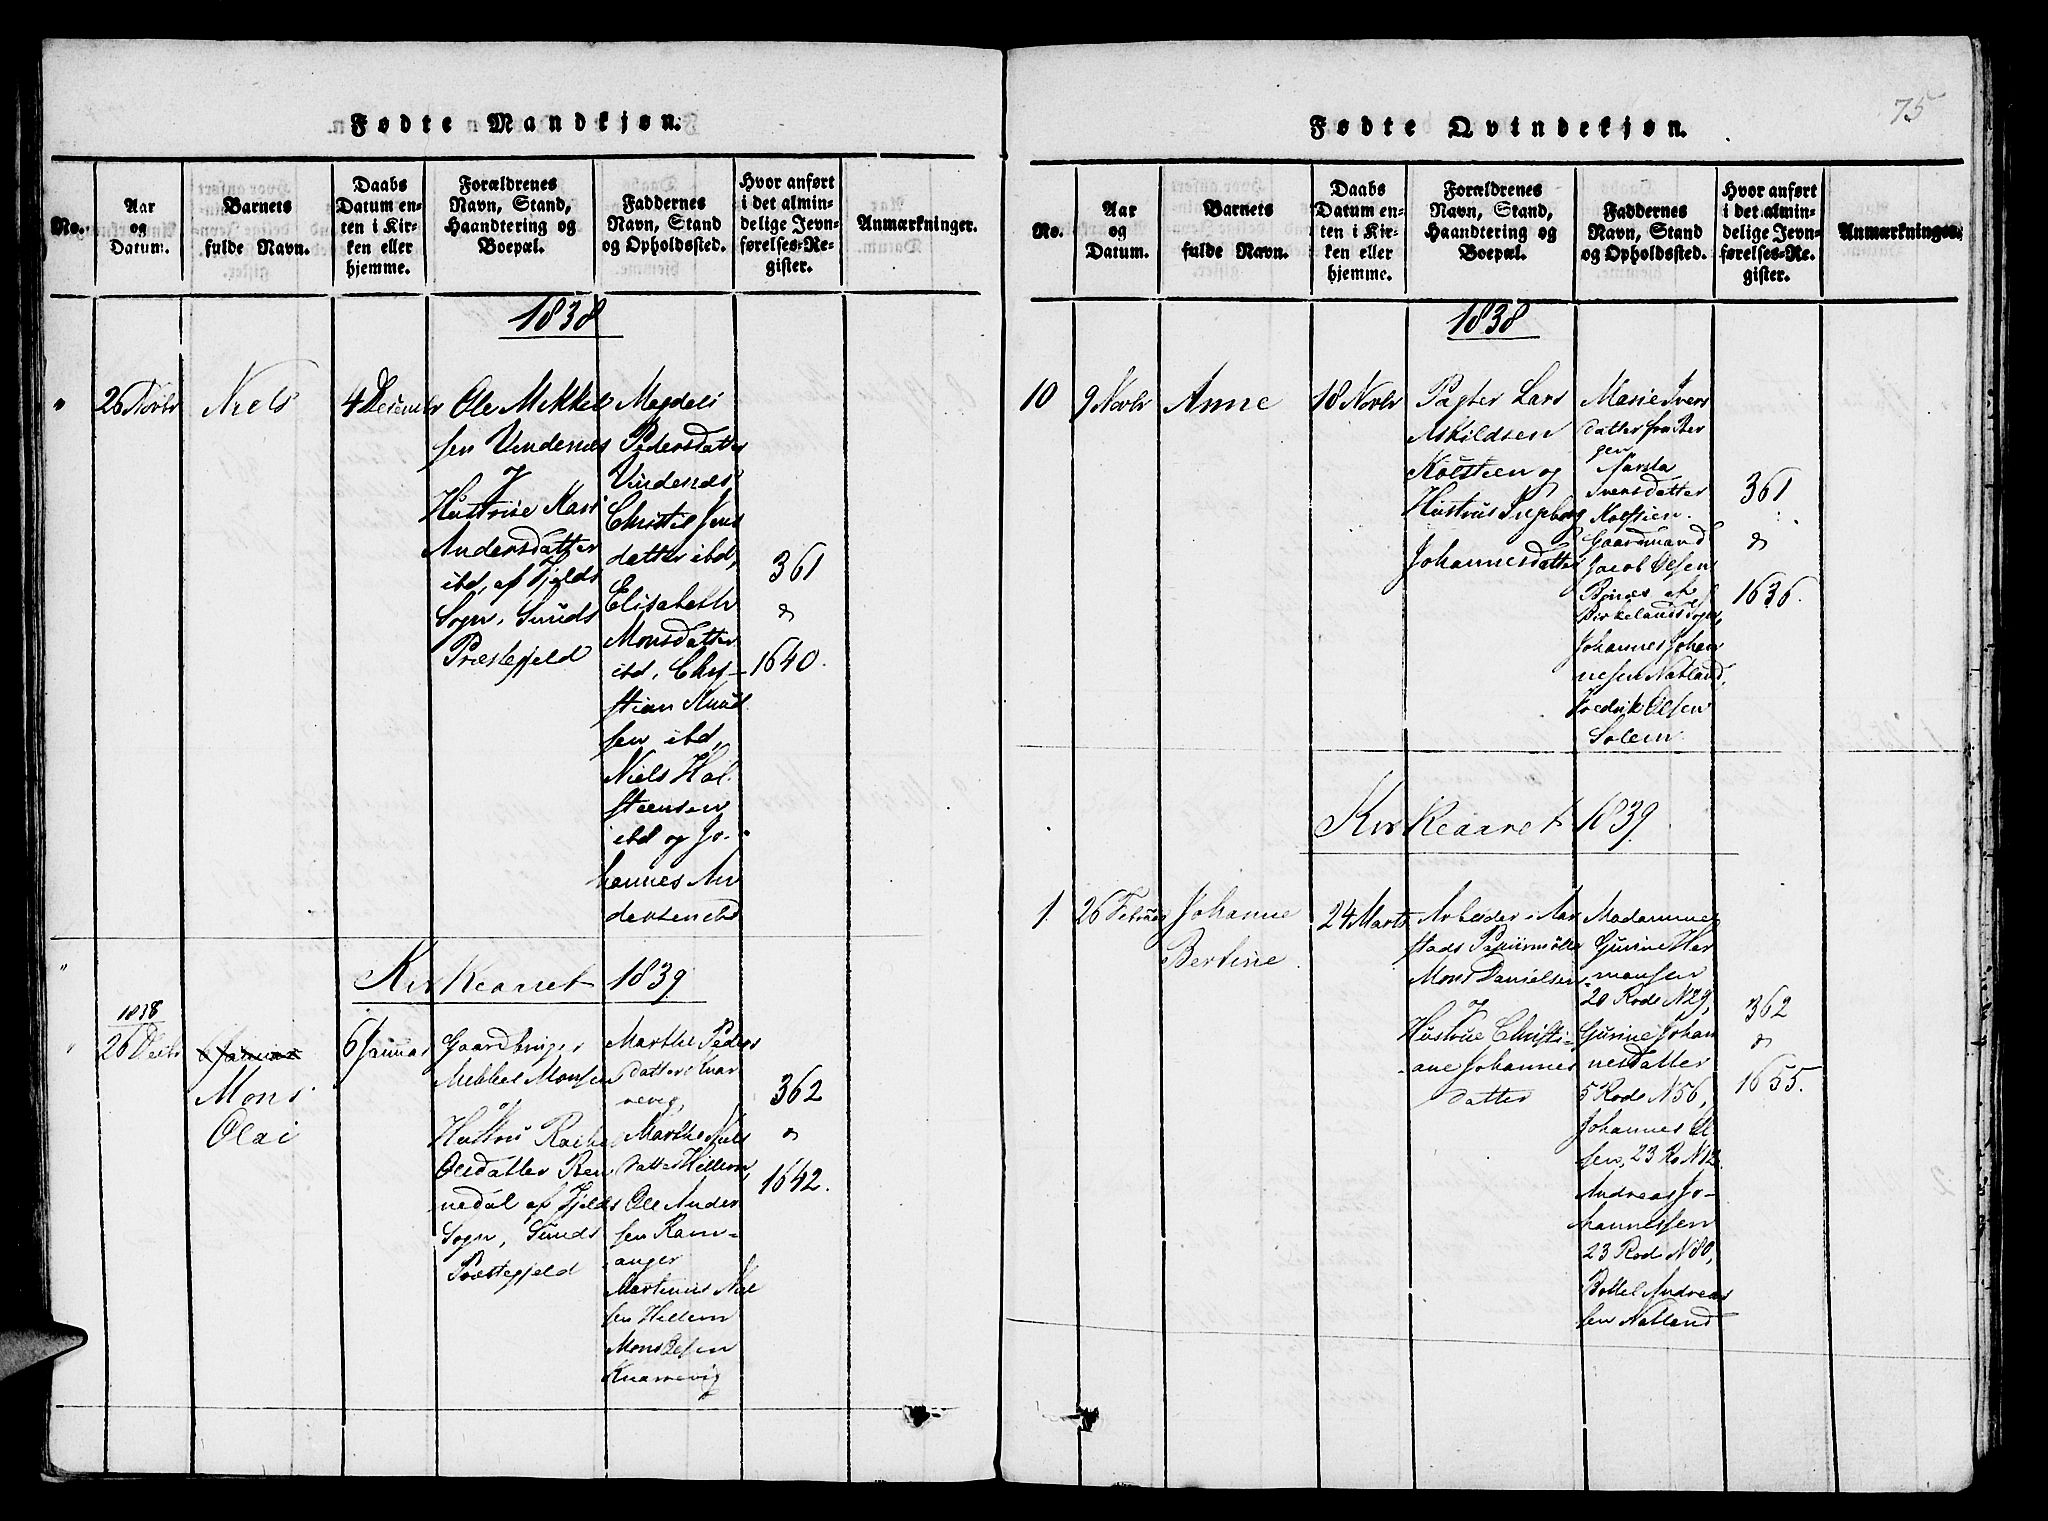 Fødte Mandkjøn.
No.
Aar
og
Datum.
Barnets
fulde Navn.
Daabs
Datum en-
ten i Kir-
ken eller
hjemme.
Forældrenes
Navn, Stand,
Haandtering og
Boepæl.
Faddernes
Navn, Stand
og Opholdssted.
Hvor anført
i det almin-
delige Jevn-
førelses-Re-
gister.
Anmærkninger.
1838
26 Novbr
Niels
4 Decembr
Ole Mikkel
sen Vindenæs
&
Hustrue Kari
Andersdatter
ibd, af Fjelds
Sogn, Sunds
Præstegjeld
Magdeli
Pedersdatter
Vindenæs,
Christie Jens
datter ibd,
Elisabeth
Monsdatter
ibd, Chri-
stian Knud
sen ibd,
Niels Hal-
steensen
ibd og Jo-
hannes An
dersen ibd
361
&
1640.
Kirkeaaret 1839
1838
26 Decbr
6 Januar
Mons
Olai
6 Januar
Gaardbruger
Mikkel Monsen
&
Hustru Rache
Olsdatter Ren
nedal af Fjelds
Sogn, Sunds
Præstegjeld
Marthe Peders
datter Knar
revig,
Marthe Niels
datter Hillern,
Ole Ander
sen Ram-
anger
Martinus Niel
sen Hillern
Mons Olsen
Knarrevig
362
&
1642.
75
Fødte Qvindekjøn.
No.
Aar
og
Datum.
Barnets
fulde Navn.
Daabs
Datum en-
ten i Kir-
ken eller
hjemme.
Forældrenes
Navn, Stand,
Haandtering og
Boepæl.
Faddernes
Navn, Stand
og Opholdssted.
Hvor anført
i det almin-
delige Jevn-
førelses-Re-
gister.
Anmærkninger.
1838
10
9 Novbr
Anne
18 Novbr
Pagter Lars
Askildsen
Kolsteen og
Hustrue Ingeborg
Johannesdatter
Marie Ivers
datter fra Ber
gen
Iversdatter
Kolstien.
Gaardmand
Jacob Olsen
Bønæs af
Birkelands Sogn,
Johannes Johan
nesen Natland,
Fredrik Olsen
Solem.
361
&
1636.
Kirkeaaret 1839.
1.
26 Februar
Johanne
Bertine
24 Marts
Arbeider i Aar
stads Papiirmølle
Mons Danielsen
&
Hustrue Christi-
ane Johannes
datter
Madamme
Gurine Her
mansen
20 Rode N 29,
Gurine Johan
nesdatter
5 Rode N 56,
Johannes Ol
sen, 23 Ro N 12.
Andreas Jo-
hannessen
23 Rode N 80,
Bottel Andreas
sen Natland
362
&
1655.